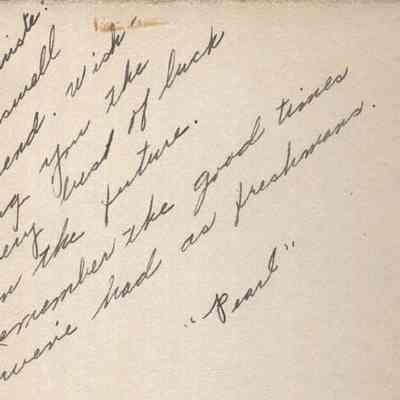 iste:
swell
end. Wish-
g you the
ery best of luck
n the future.
emember the good times
weve had as freshmans.
"Pearl"